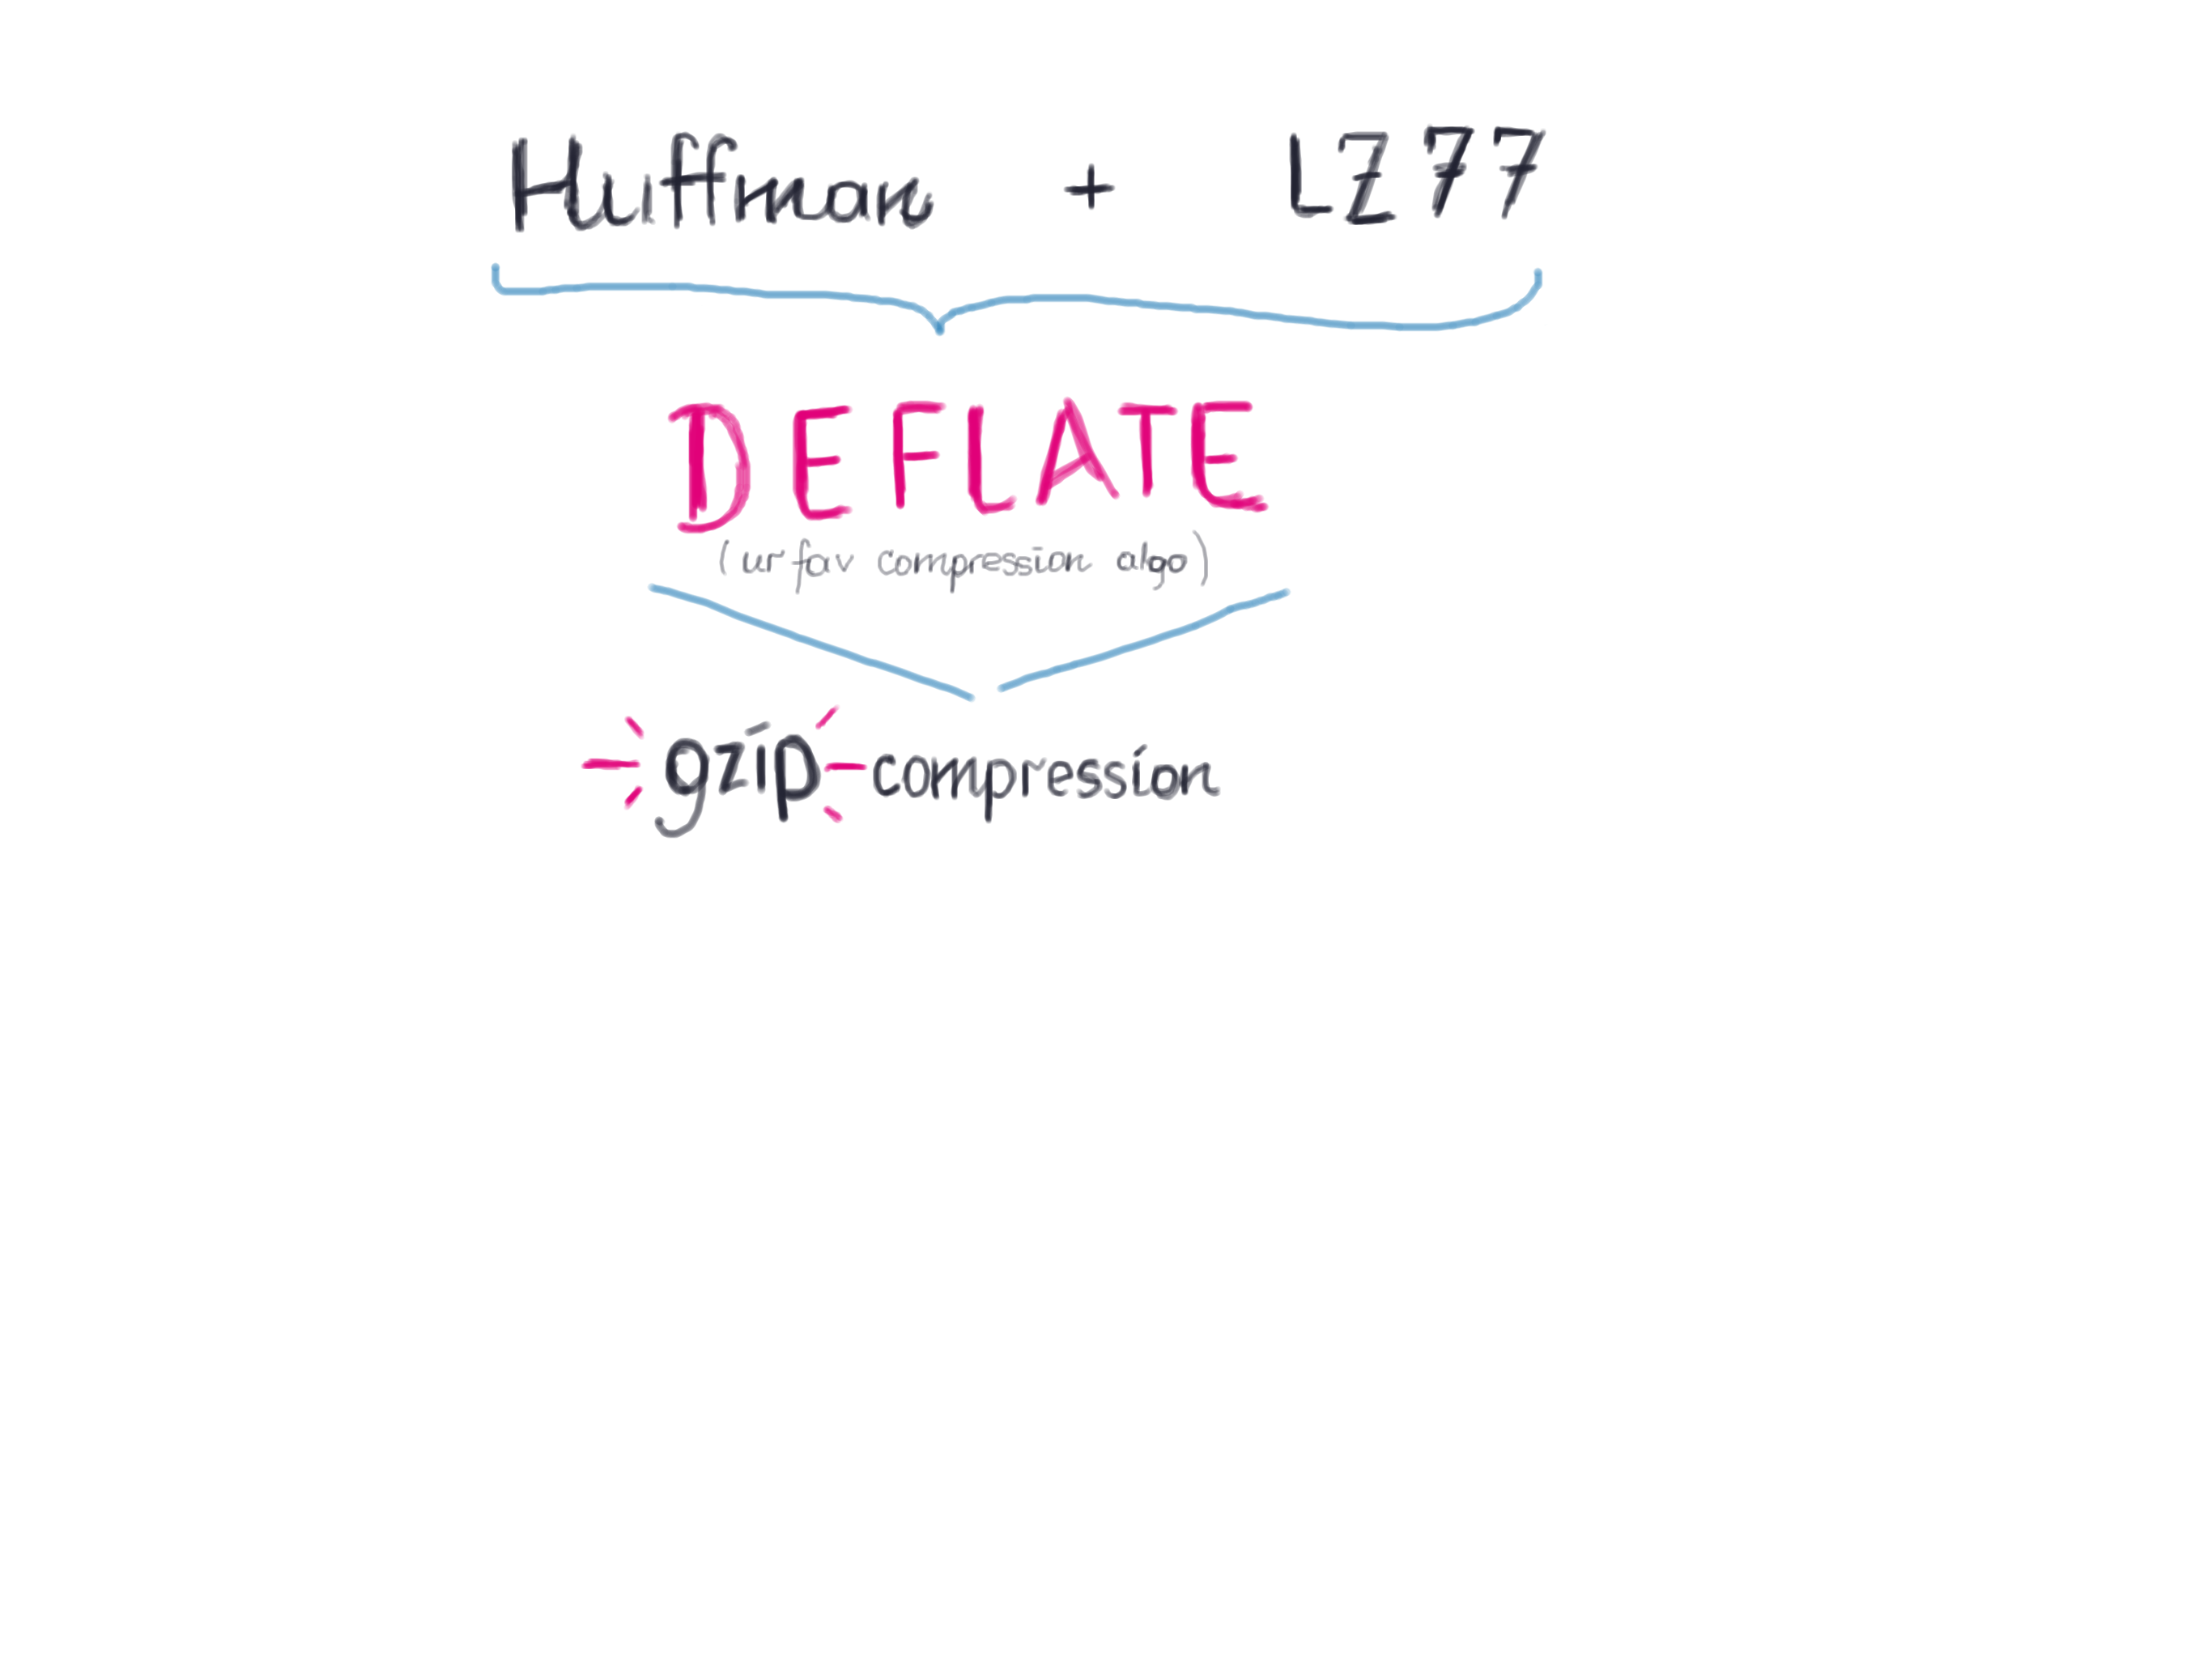 Huffman + LZ77
DEFLATE
(ur fav compression algo)
gzip-compression